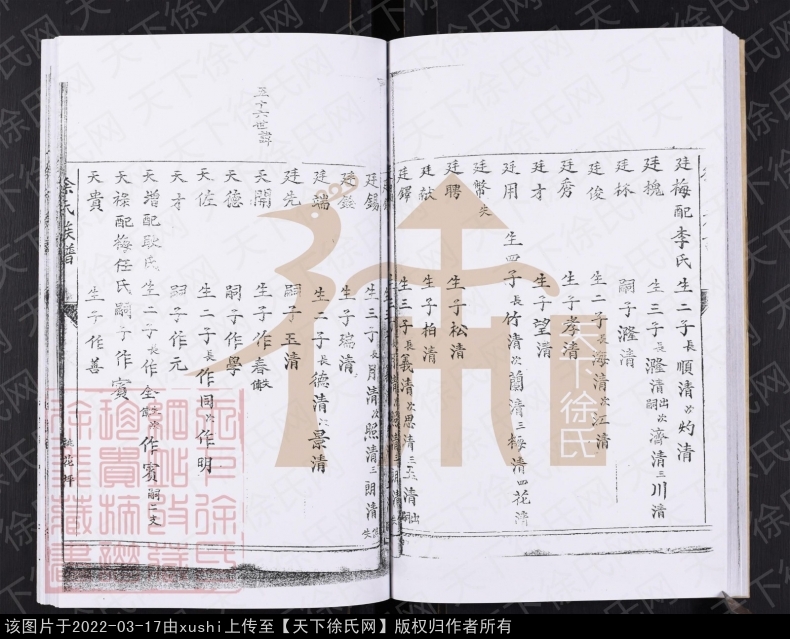 廷梅配李氏生二子長順清次灼清
廷槐生三子長漋清出嗣次濟清三川清
廷秝嗣子漋清
廷俊生二子長海清次江清
廷秀生子孝清
廷才生子望清
廷用生四子長竹清次蘭清三梅清四花清
廷幣失
廷聘生子松清
廷敖生子柏清
廷鐸生三子長義清次思清三清出嗣
廷錫生三子長月清次照清三朗清
廷鎰生子瑞清
廷端生二子長德清次景清
廷先嗣子玉清
五十六世諱
天開生子作春
天德嗣子作學
天佐生二子長作周次作明
天才嗣子作元
天增配耿氏生二子長作全次作賓嗣二支
天祿配梅任氏嗣子作賓
天貴生子作善
徐氏族譜
桃花坪
天下徐氏
天下徐氏网
该图片于2022-03-17由xushi上传至【天下徐氏网】版权归作者所有